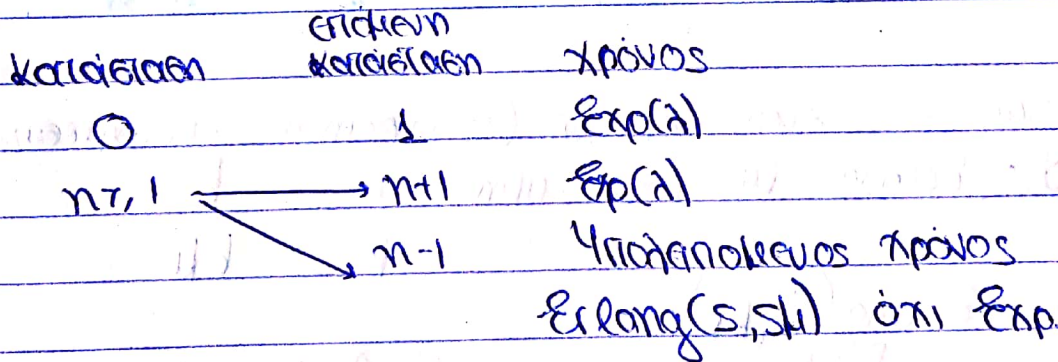 επόμενη
κατάσταση κατάσταση χρόνος
0 1 Exp(λ)
n≥1 → n+1 Exp(λ)
n-1 Υπολειπόμενος χρόνος
Erlang(s,sμ) όχι Exp.